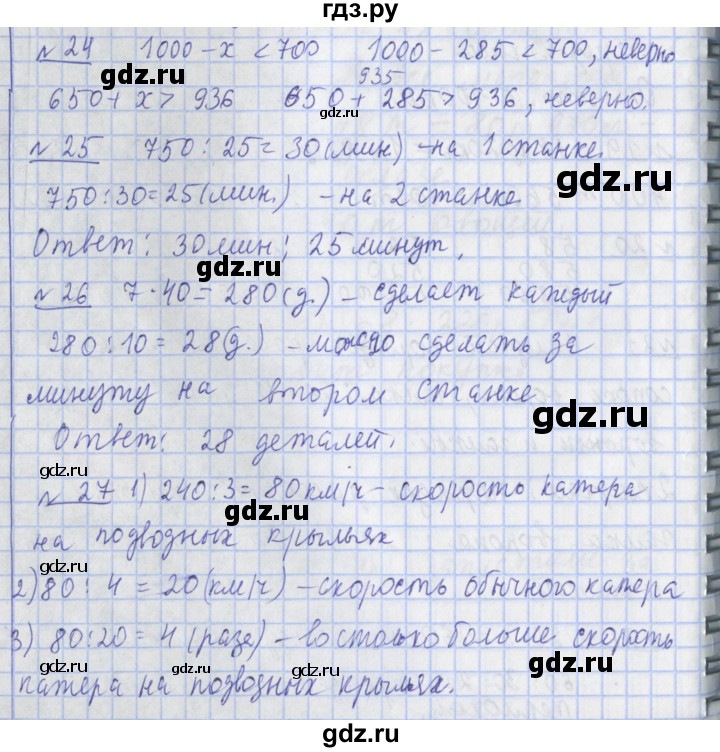 гдз.ру
№ 24 1000 - x < 700 1000 - 285 < 700, неверно
935
650 + x > 936 650 + 285 > 936, неверно.
gdz.ru
gdz.ru
№ 25 750 : 25 = 30 (мин) - на 1 станке.
gdz.ru
750 : 30 = 25 (мин.) - на 2 станке
Ответ: 30 мин; 25 минут.
gdz.ru
gdz.ru
№ 26 7 · 40 = 280 (д.) - сделает каждый
280 : 10 = 28 (д.) - можно сделать за
минуту на втором станке
gdz.ru
Ответ: 28 деталей.
gdz.ru
gdz.ru
№ 27 1) 240 : 3 = 80 км/ч - скорость катера
gdz.ru
на подводных крыльях
gdz.ru
2) 80 : 4 = 20 (км/ч) - скорость обычного катера
3) 80 : 20 = 4 (раза) - во столько больше скорость
gdz.ru
gdz.ru
gdz.ru
катера на подводных крыльях.
gdz.ru
gdz.ru